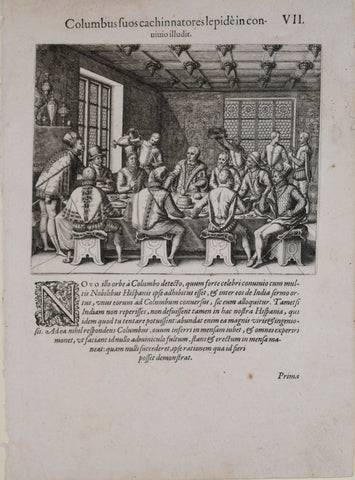 Columbus suos cachinnatores lepidè in con- VII.
uiuio illudit.
NOVO illo orbe à Columbo detecto, quum forte celebri conuiuio cum mul-
tis Nobilibus Hispanis ipse adhibitus esset, & inter eos de India sermo or-
tus, vnus eorum ad Columbum conuersus, sic eum alloquitur. Tametsi
Indiam non reperisses, non defuissent tamen in hac nostra Hispania, qui
idem quod tu tentare potuissent: abundat enim ea magnis viris & ingenio-
sis. Ad ea nihil respondens Columbus, ouum inferri in mensam iubet, & omnes experiri
monet, vt faciant id nullo adminiculo fultum, stans & erectum in mensa ma-
neat: quum nulli succederet, ipse rationem qua id fieri
posset demonstrat.
Prima